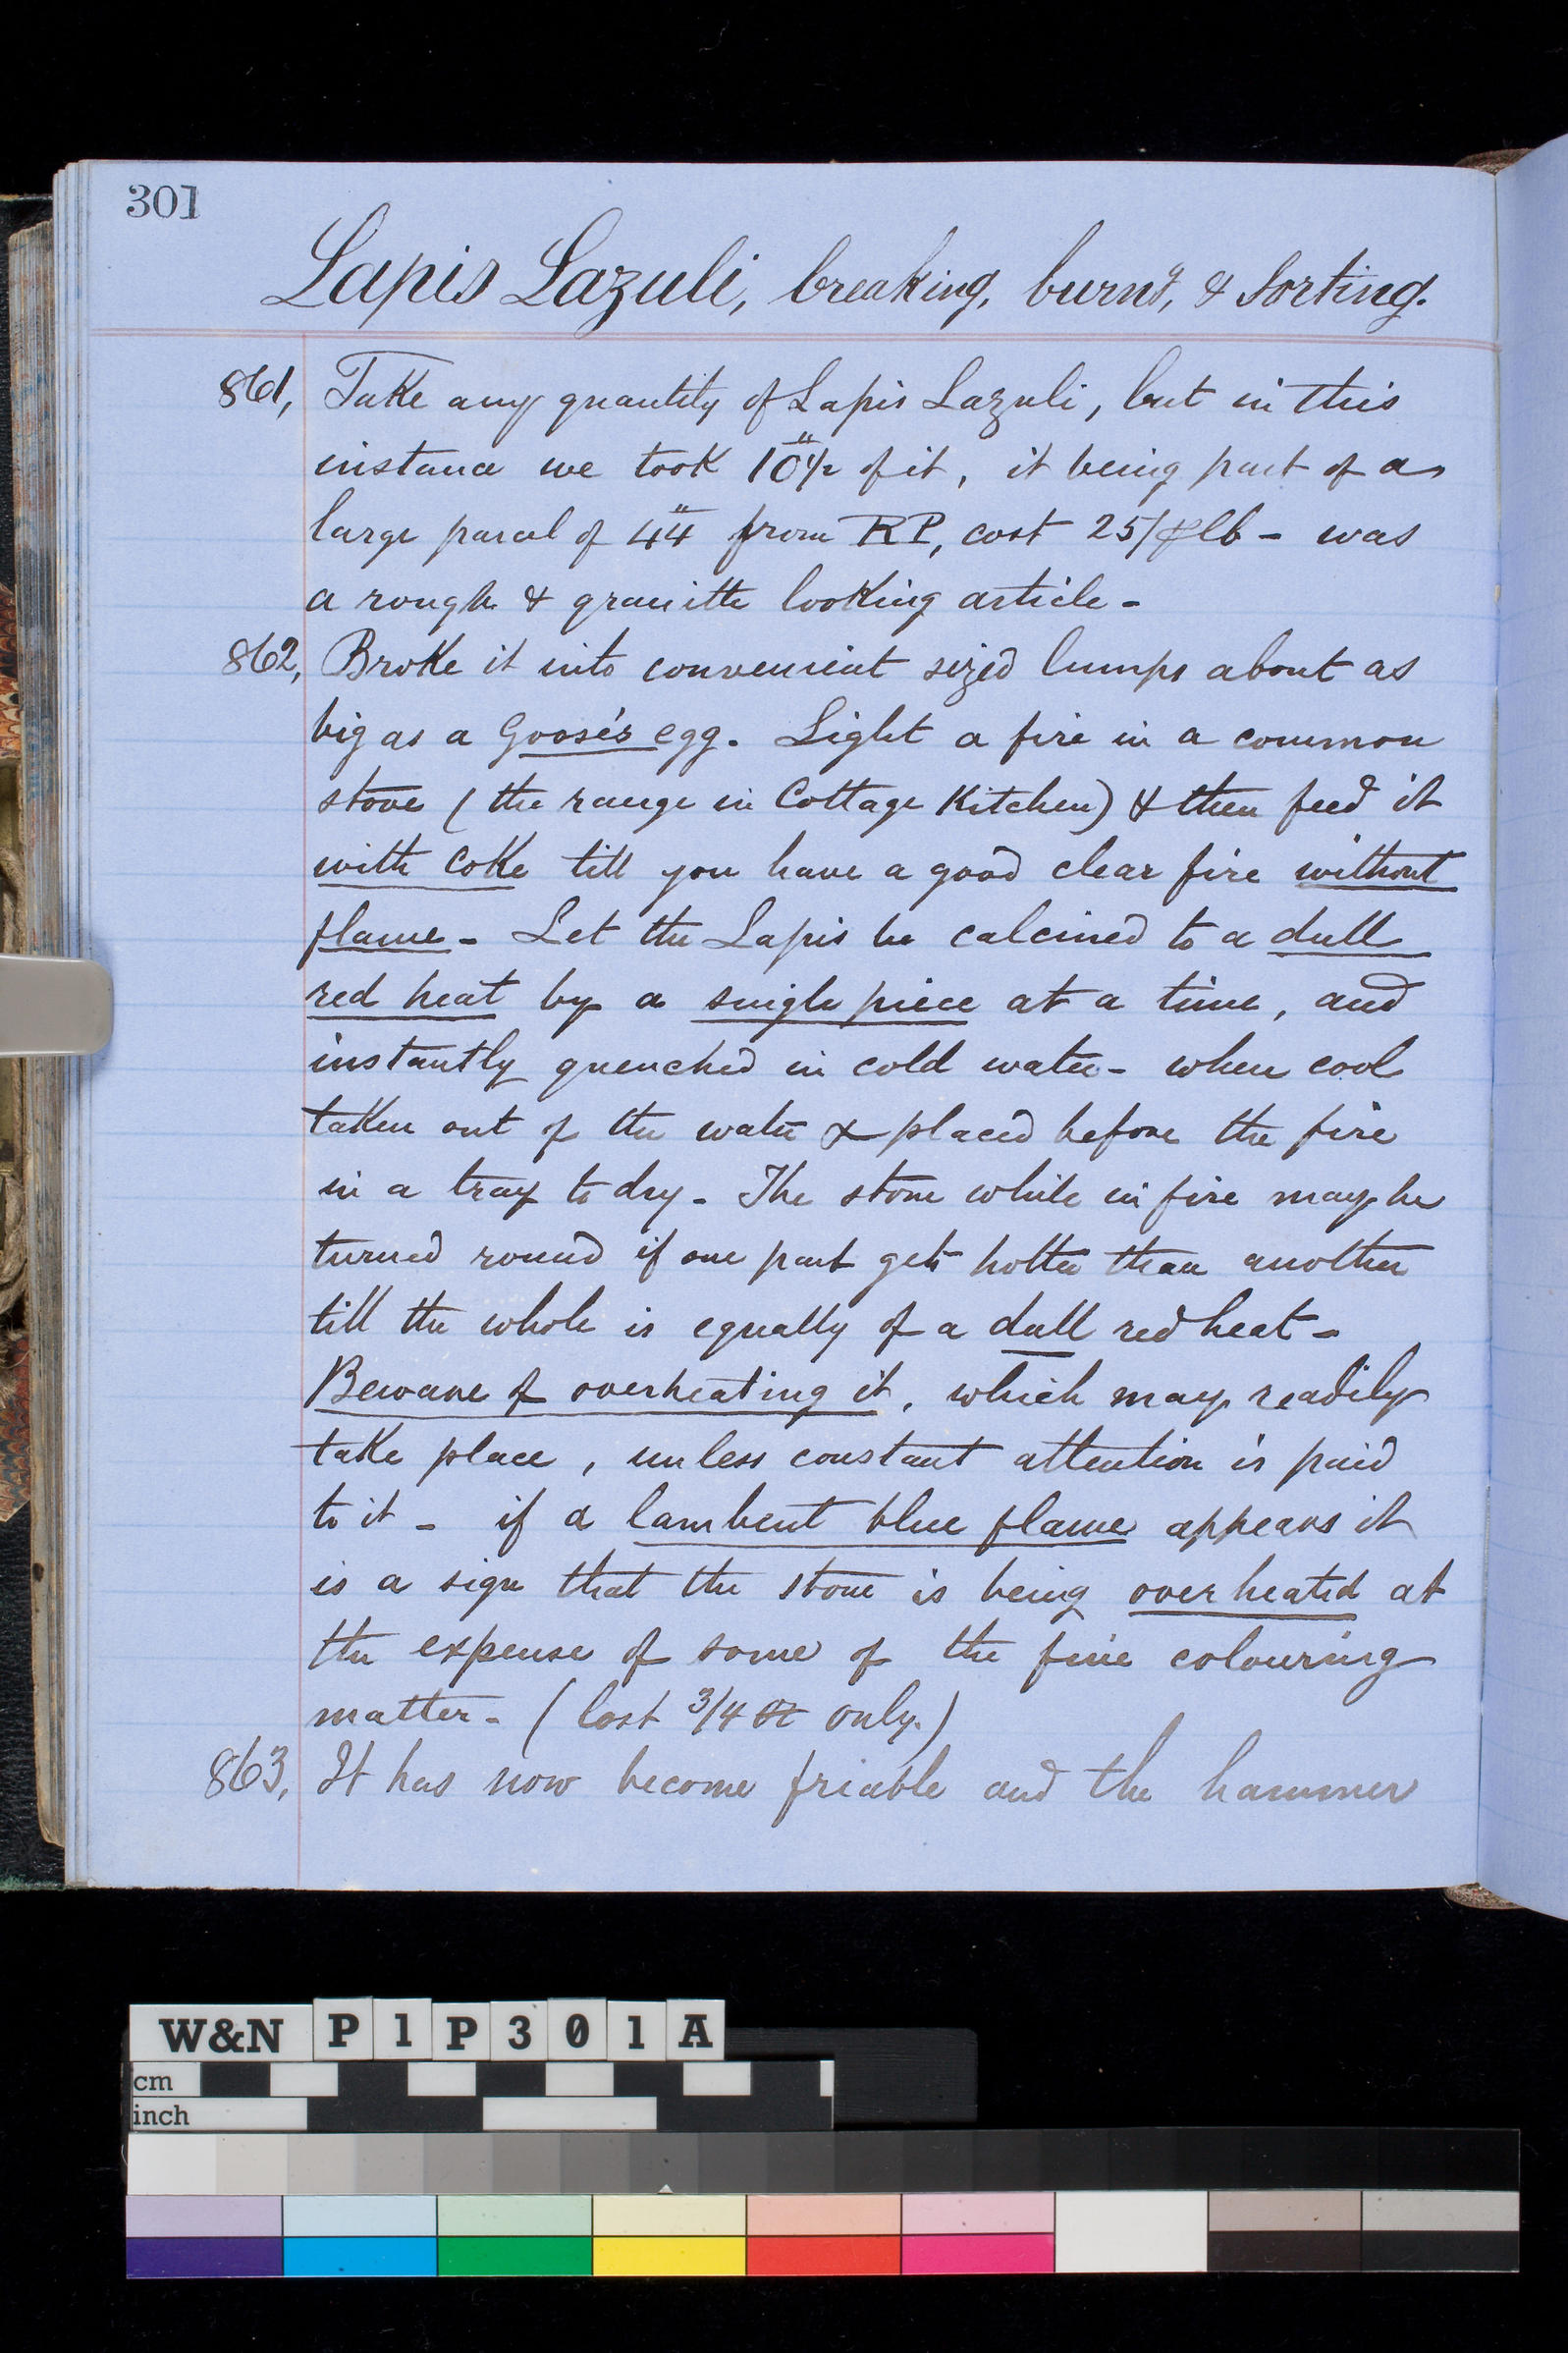 301
Lapis Lazuli, breaking, burng, & Sorting.
861, Take any quantity of Lapis Lazuli, but in this
instance we took 10 1/2 of it, it being part of a
large parcel of 44 from RP, cost 25/ ⅌ lb - was
a rough & granite looking article -
862, Broke it into convenient sized lumps about as
big as a Goose's egg. Light a fire in a common
stove (the range in Cottage Kitchen) & then feed it
with Coke till you have a good clear fire without
flame - Let the Lapis be calcined to a dull
red heat by a single piece at a time, and
instantly quenched in cold water - when cool
taken out of the water & placed before the fire
in a tray to dry - The stone while in fire may be
turned round if one part gets hotter than another
till the whole is equally of a dull red heat -
Beware of overheating it, which may readily
take place, unless constant attention is paid
to it - if a lambent blue flame appears it
is a sign that the stone is being over heated at
the expense of some of the fine colouring
matter - (lost 3/4 oz only.)
863, It has now become friable and the hammer
W&N P1P301A
cm
inch